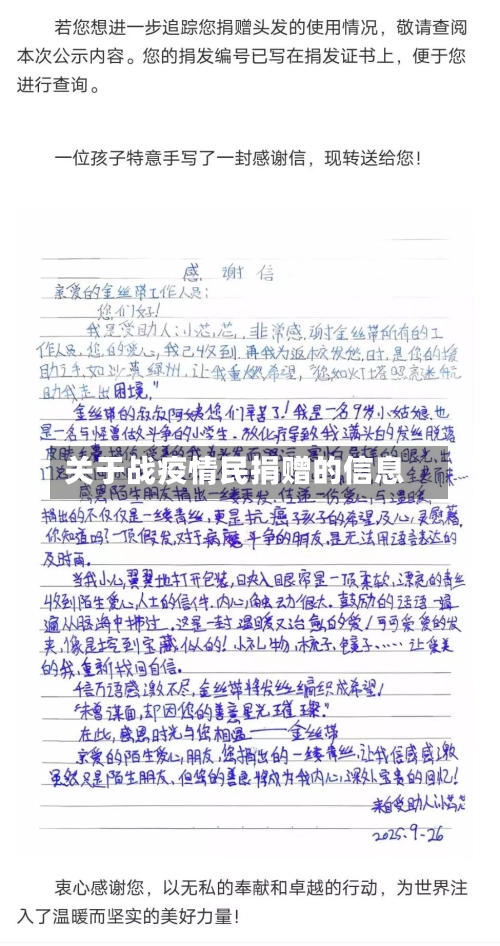 若您想进一步追踪您捐赠头发的使用情况，敬请查阅
本次公示内容。您的捐发编号已写在捐发证书上，便于您
进行查询。
一位孩子特意手写了一封感谢信，现转送给您！
感谢信
亲爱的金丝带工作人员：
您们好！
我是受助人：小芯芯，非常感谢金丝带所有的工
作人员，您的爱心，我已收到，再我为返校发愁时，是您的援
助之手，如沙漠绿洲，让我重燃希望，“您如灯塔照亮迷航
助我走出困境。”
金丝带的叔叔阿姨您们辛苦了！我是一名9岁小姑娘也
是一名与怪兽做斗争的小学生。放化疗导致我满头的发丝脱落
关于战疫情民捐赠的信息
感恩陌生朋友捐出一缕秀发，传递一份爱心与温暖，
捐出的不仅仅是一缕青丝，更是抗癌孩子的希望，及心灵慰藉，
你知道吗？一顶假发，对于病魔斗争的朋友，是无法用语言表达的
及时雨。
当我小心翼翼地打开包装，映入眼帘是一顶柔软，漂亮的青丝
收到陌生爱心人士的信件，内心触动很大。鼓励的话语一遍
遍从脑海中拂过，这是一封温暖又治愈的爱！可可爱爱的发
夹，像是挖到宝藏似的！小礼物，梳子，镜子……让爱美
的我，重新找回自信。
千言万语感激不尽，金丝带将发丝编织成希望！
“未曾谋面，却因您的善意星光璀璨。”
在此，感恩时光与您相遇——金丝带
亲爱的陌生爱心朋友，您捐出的一缕青丝，让我倍感感激
虽然只是陌生朋友，但您的善良将成为我内心深处宝贵的回忆！
来自受助人小芯芯
2025.9-26
衷心感谢您，以无私的奉献和卓越的行动，为世界注
入了温暖而坚实的美好力量！